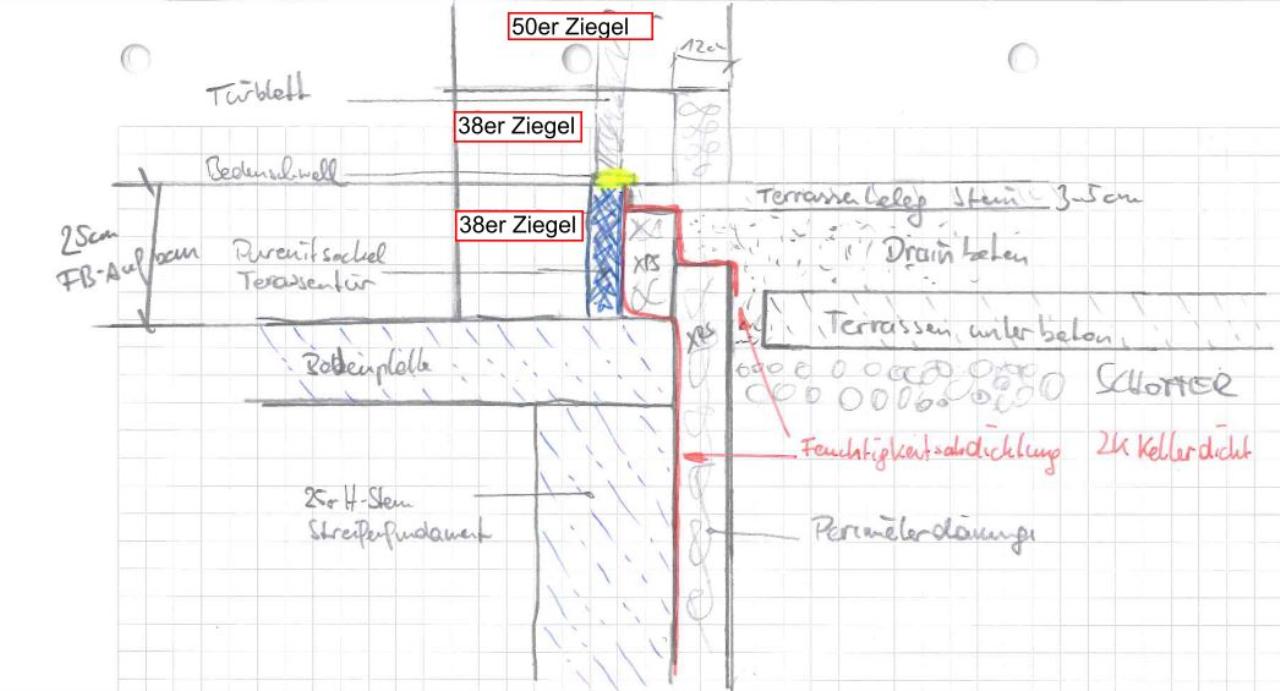 50er Ziegel
12cm
Türblatt
38er Ziegel
Bodenschwell
Terrassenbeleg Stein 3-5cm
38er Ziegel
25cm
FB-Aufbau
Purenitsockel
Terassentür
XPS
Drainbeton
XPS
Terrassenunterbeton
Bodenplatte
SCHOTTER
Feuchtigkeitsabdichtung 2K Kellerdicht
25er H-Stein
Streifenfundament
Perimeterdämmung